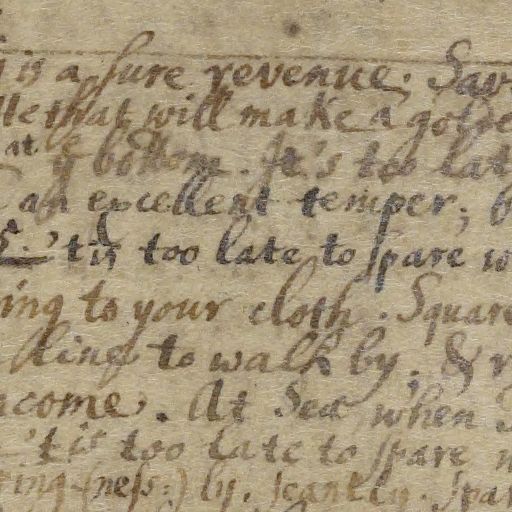 is a sure revenue; Sav
that will make a golde
at yͤ bottom. It's too lat
an excellent temper; b
'tis too late to spare w
ing to your cloth. Square
line to walk by, & r
ncome. At Sea, when
'tis too late to spare w
ting-(ness:) ly. scantly. Spar